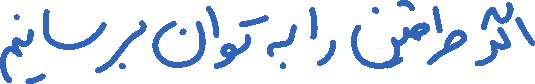 اگر طرفین را به توان برسانیم